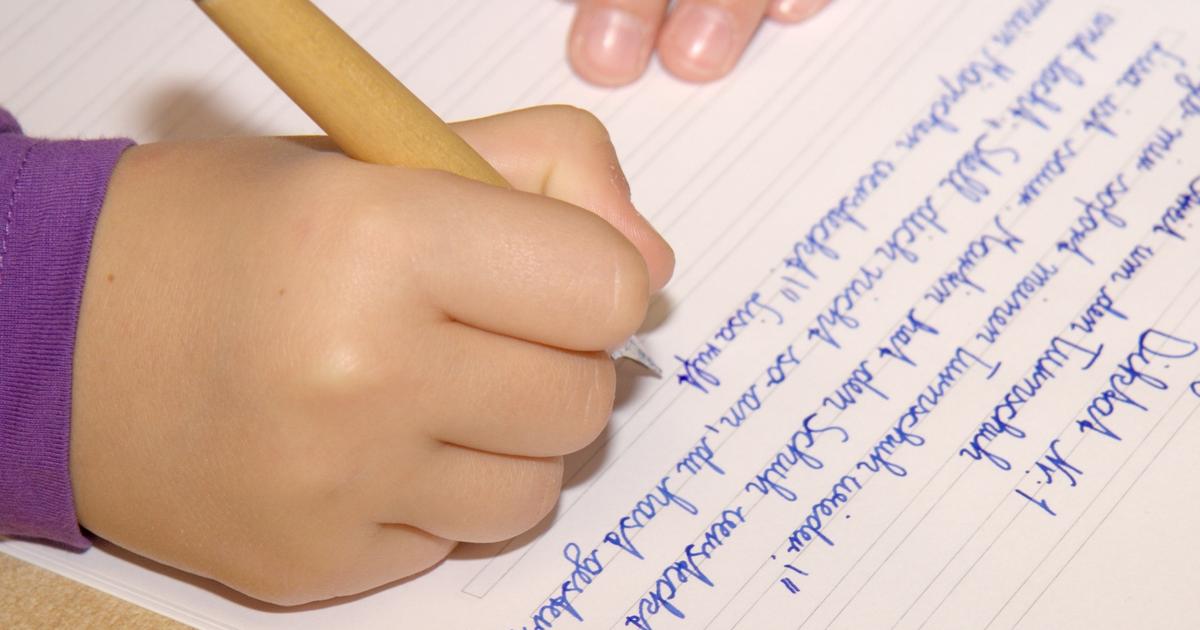 Diktat Nr. 1
um den Turnschuh
mir sofort meinen Turnschuh wieder!"
Lisa ist sauer. Martin hat den Schuh versteckt
und lacht: „Stell dich nicht so an, du hast gestern
mein Mäppchen versteckt!" Lisa ruft